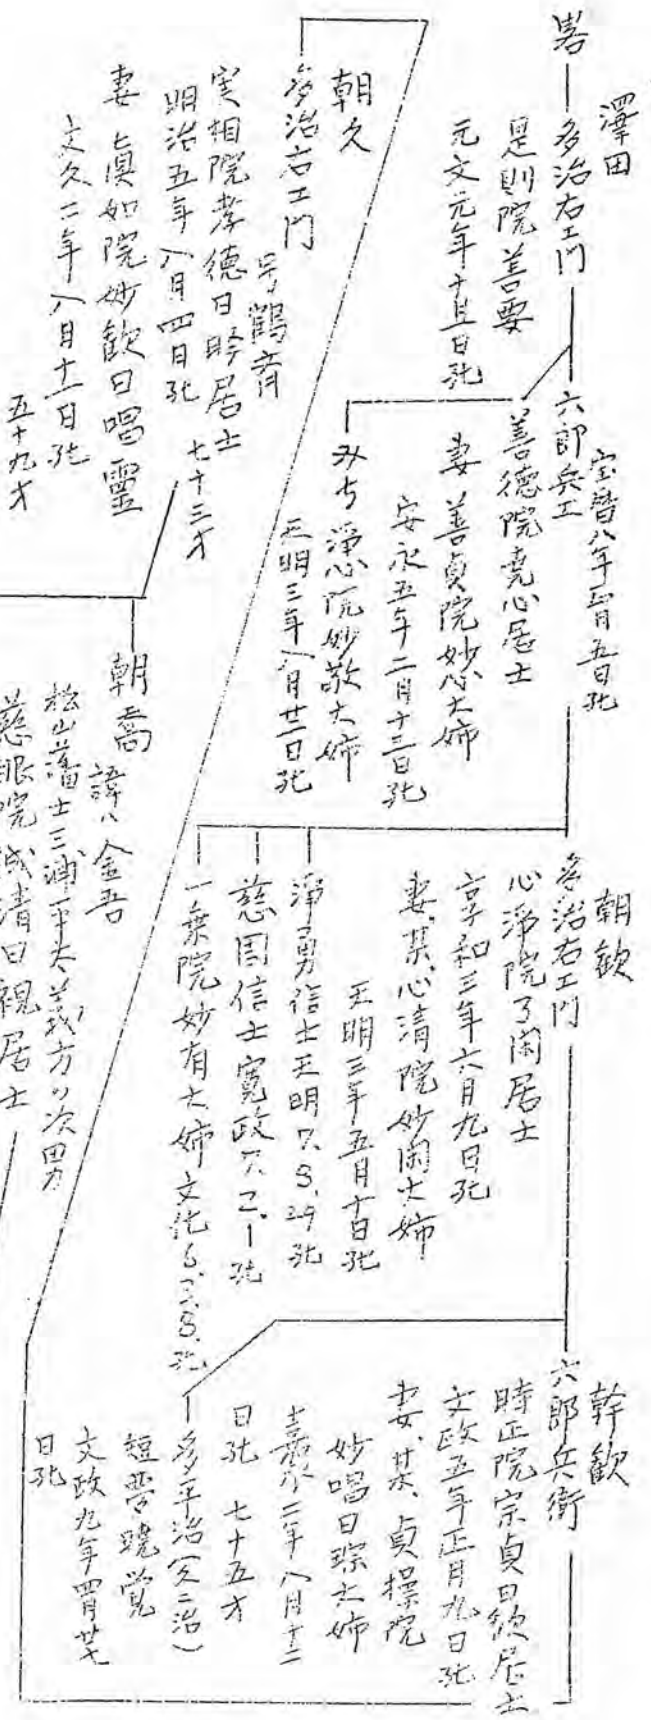 澤田
多治右エ門
是則院善要
元文元年十月 日死
宝暦八年 月五日死
六郎兵エ
善徳院 心居士
妻 善貞院妙心大姉
安永五年二月十三日死
浄心院妙敬大姉
天明三年八月廿一日死
朝歓
多治右エ門
心浄院了閑居士
享和三年六月九日死
妻、某、心清院妙閑大姉
天明三年五月十日死
浄勇信士天明7.8.29死
慈園信士寛政7.2.1死
一乗院妙有大姉文化6.3.8.死
幹歓
六郎兵衛
時正院宗貞日欽居士
文政五年正月九日死
妻、某、貞操院
妙唱日琮大姉
嘉永二年八月十二
日死 七十五才
多平治(久二治)
文政九年四月廿七
日死
朝久
多治右エ門
号鶴斉
実相院孝徳日 居士
明治五年八月四日死
七十三才
妻 真如院妙歓日唱霊
文久二年八月十一日死
五十九才
朝喬
諱ハ金吾
松山藩士三浦平太義方ノ次男
慈眼院成清日視居士